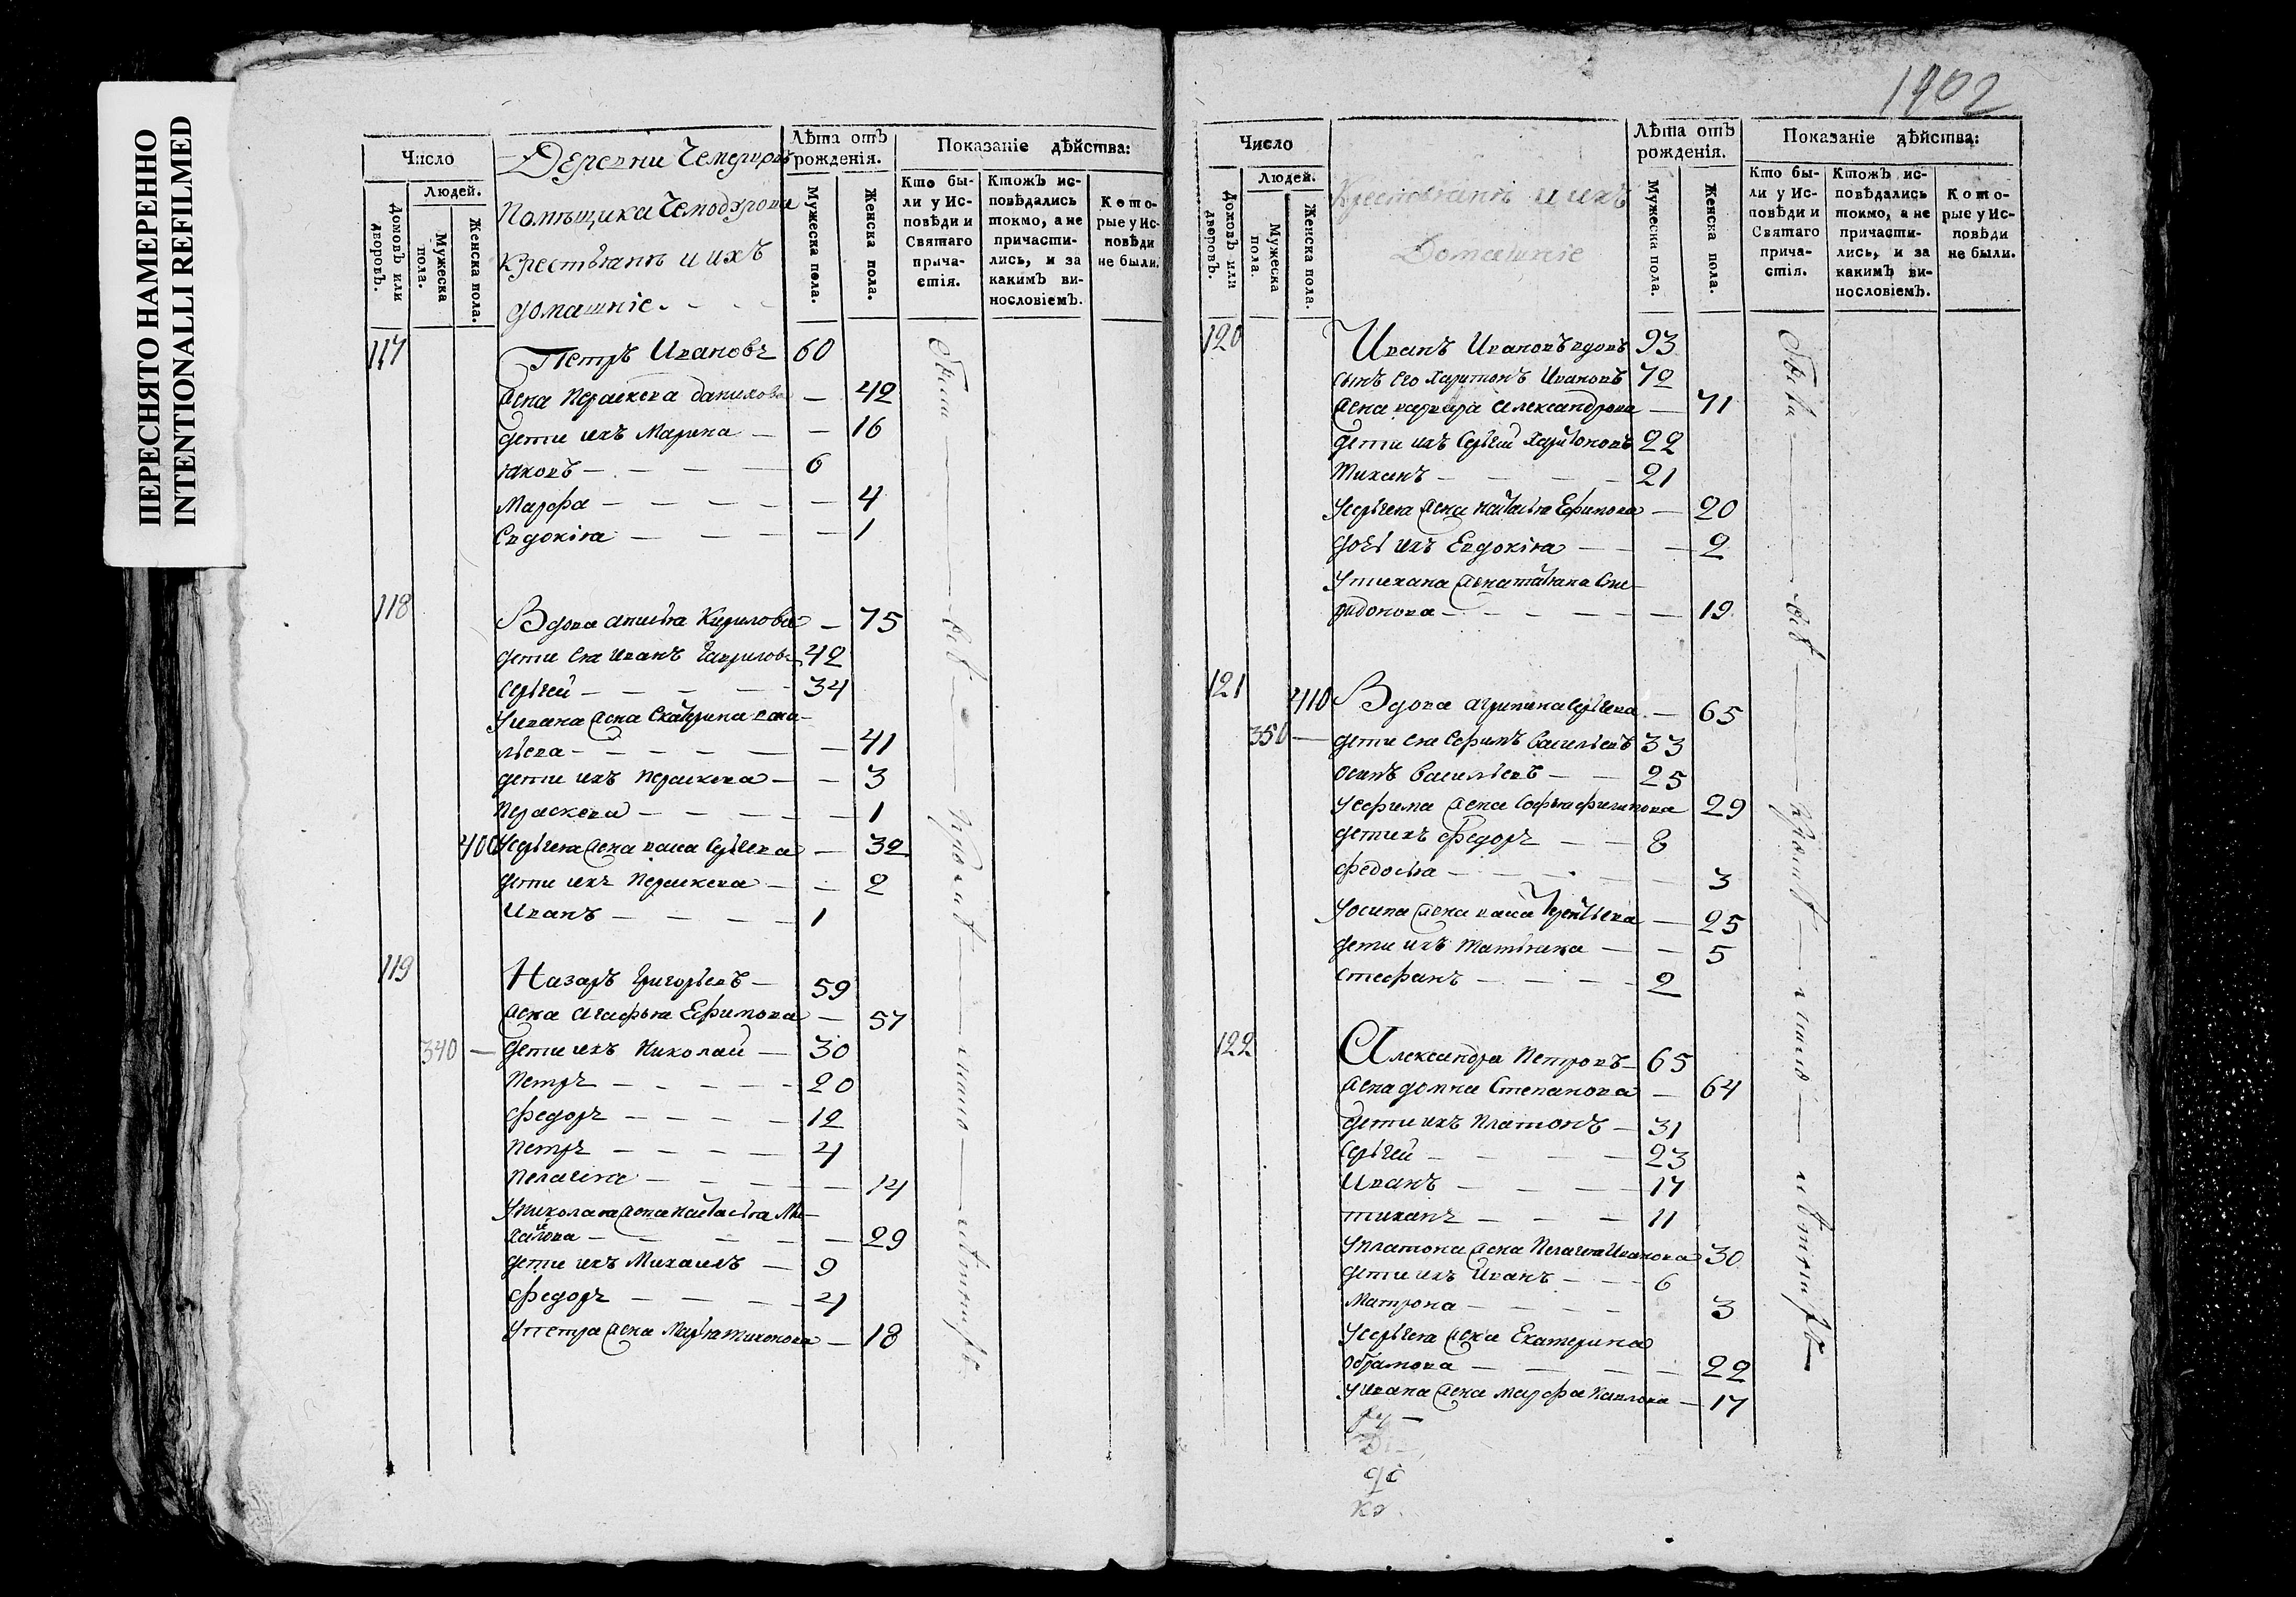 ПЕРЕСНЯТО НАМЕРЕННО
INTENTIONALLI REFILMED
Число
Людей.
Домовъ или дворовъ.
Мужеска пола.
Женска пола.
Деревни
Помѣщика
крестьянъ и ихъ
домашніе
Лѣта отъ рожденія.
Мужеска пола.
Женска пола.
Показаніе дѣйства:
Кто бы-
ли у Ис-
повѣди и
Святаго
прича-
стія.
Ктожъ ис-
повѣдались
токмо, а не
причасти-
лись, и за
какимъ ви-
нословіемъ.
Кото-
рые у Ис-
повѣди
не были.
117 Петръ Ивановъ 60
жена Параскева Данилова — 42
дети ихъ Марина — — 16
Яковъ — 6
Марфа — 4
Евдокія — 1
118 Вдова Анисья Кирилова — 75
дети ея Иванъ Гавриловъ 42
Сергей — 34
У Ивана жена Екатерина Васи-
льева — 41
дети ихъ Параскева — 3
Параскева — 1
400 У Сергея жена Васа Сергеева — 32
дети ихъ Параскева — 2
Иванъ — 1
119 Назаръ Григорьевъ — 59
жена Агафья Ефимова — 57
340 — дети ихъ Николай — 30
Петръ — 20
Федоръ — 12
Петръ — 4
Пелагея — 14
У Николая жена Настасья Ми-
хайлова — 29
дети ихъ Михаилъ — 9
Федоръ — 4
У Петра жена Марья Тихонова — 18
Были
всѣ
1402
Число
Людей.
Домовъ или дворовъ.
Мужеска пола.
Женска пола.
Крестьянъ и ихъ
Домашніе
Лѣта отъ рожденія.
Мужеска пола.
Женска пола.
Показаніе дѣйства:
Кто бы-
ли у Ис-
повѣди и
Святаго
прича-
стія.
Ктожъ ис-
повѣдались
токмо, а не
причасти-
лись, и за
какимъ ви-
нословіемъ.
Кото-
рые у Ис-
повѣди
не были.
120 Иванъ Ивановъ вдовъ 93
сынъ его Харитонъ Ивановъ 72
жена Варвара Александрова — 71
дети ихъ Сергей Харитоновъ 22
Тиханъ — 21
У Сергея жена Настасья Ефимова — 20
дочь ихъ Евдокія — 2
У Тихана жена Татьяна Спи-
ридонова — 19
121 410 Вдова Агрипина Сергеева — 65
350 — дети ея Ефимъ Васильевъ 33
Осипъ Васильевъ — 25
У Ефима жена Софья Филипова 29
дети ихъ Федоръ — 8
Федосья — 3
У Осипа жена Васа Терентьева — 25
дети ихъ Татьяна — 5
Стефанъ — 2
122 Александра Петровъ 65
жена Домна Степанова — 64
дети ихъ Платонъ — 31
Сергей — 23
Иванъ — 17
Тиханъ — 11
У Платона жена Пелагея Иванова 30
дети ихъ Иванъ — 6
Матрона — 3
У Сергея жена Екатерина
Обрамова — 22
У Ивана жена Марфа Павлова — 17
Были
всѣ